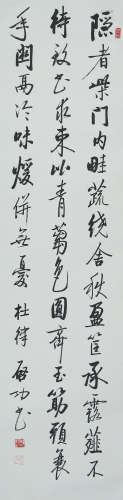 隱者柴門內畦蔬繞舍秋盈筐承露薤不
待致書求束比青芻色圓齊玉筯頭衰
年關鬲冷味煖併無憂 杜律 啟功書